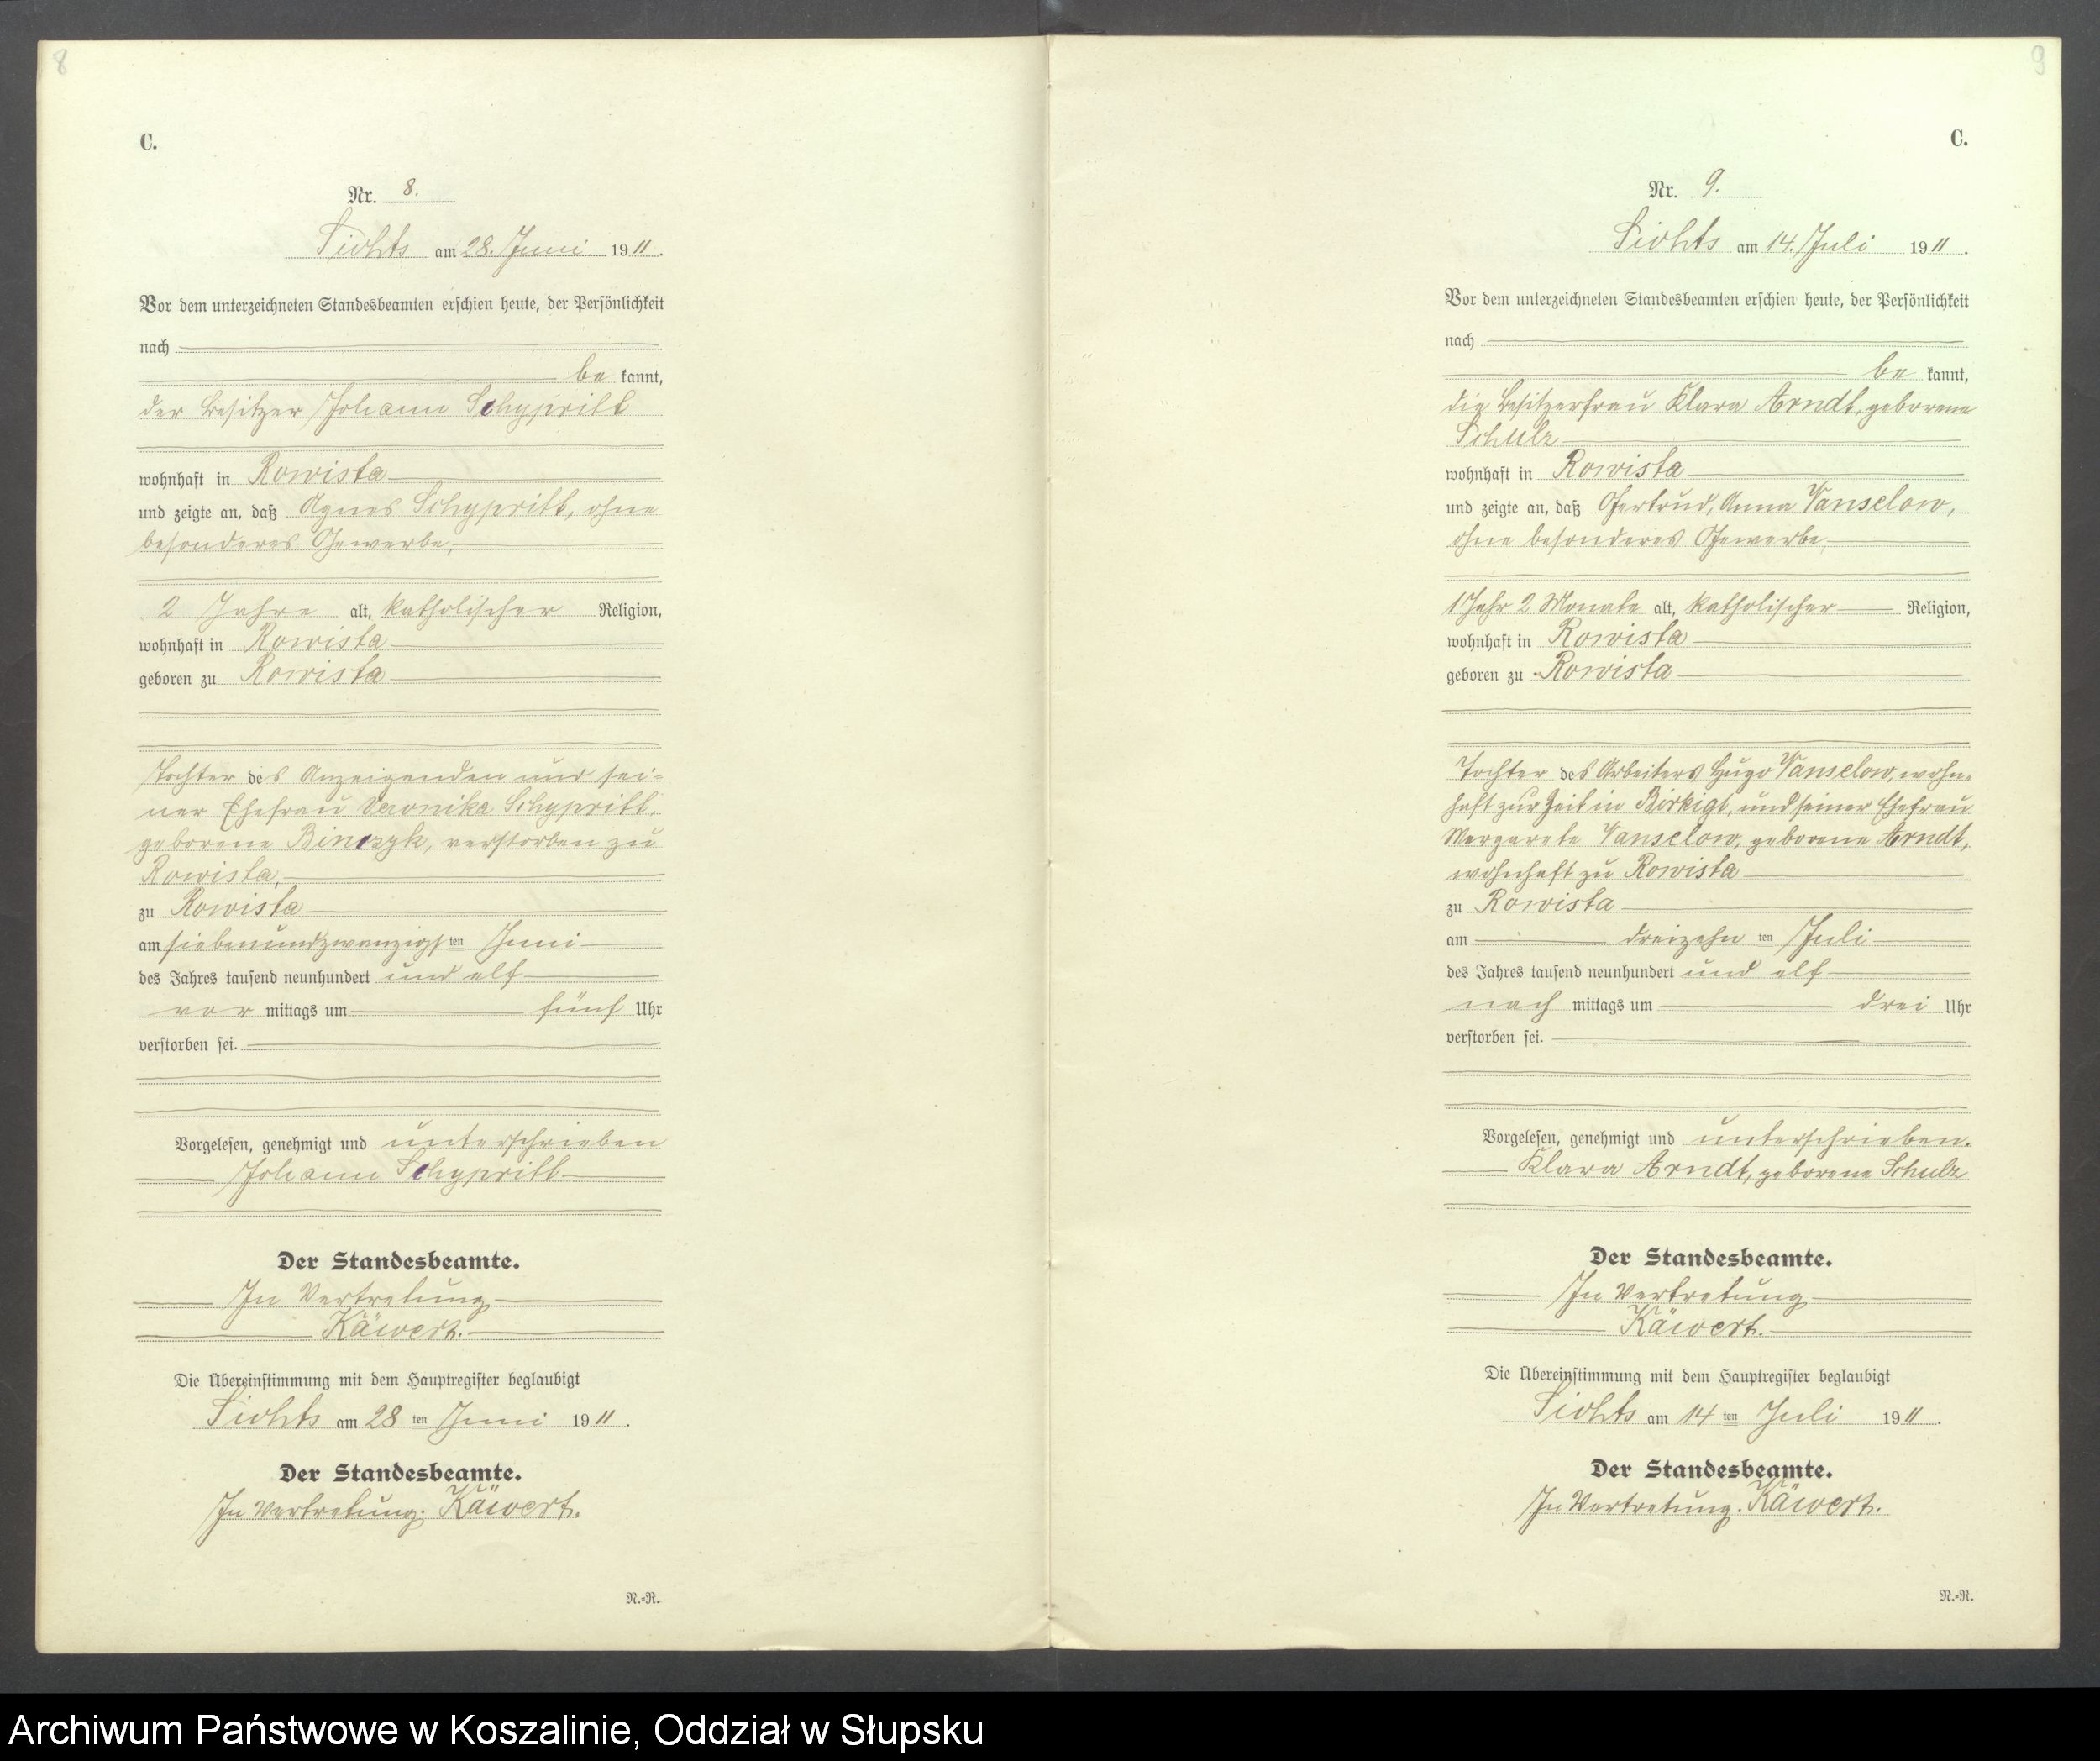 8
C.
Nr. 8.
Sichts am 28. Juni 1911.
Vor dem unterzeichneten Standesbeamten erschien heute, der Persönlichkeit
nach
be kannt,
der Besitzer Johann Schypritt
wohnhaft in Rowista
und zeigte an, daß Agnes Schypritt, ohne
besonderes Gewerbe,
2 Jahre alt, katholischer Religion,
wohnhaft in Rowista
geboren zu Rowista
Tochter des Anzeigenden und sei-
ner Ehefrau Veronika Schypritt,
geborene Binczyk, verstorben zu
Rowista,
zu Rowista
am siebenundzwanzigsten Juni
des Jahres tausend neunhundert und elf
vor mittags um fünf Uhr
verstorben sei.
Vorgelesen, genehmigt und unterschrieben
Johann Schypritt
Der Standesbeamte.
In Vertretung
Käwert.
Die Übereinstimmung mit dem Hauptregister beglaubigt
Sichts am 28 ten Juni 1911.
Der Standesbeamte.
In Vertretung. Käwert.
N.-R.
9
C.
Nr. 9.
Sichts am 14. Juli 1911.
Vor dem unterzeichneten Standesbeamten erschien heute, der Persönlichkeit
nach
be kannt,
die Besitzerfrau Klara Arndt, geborene
Schulz
wohnhaft in Rowista
und zeigte an, daß Gertrud, Anna Vanselow,
ohne besonderes Gewerbe,
1 Jahr 2 Monate alt, katholischer Religion,
wohnhaft in Rowista
geboren zu Rowista
Tochter des Arbeiters Hugo Vanselow, wohn-
haft zur Zeit in Birkigt, und seiner Ehefrau
Margarete Vanselow, geborene Arndt,
wohnhaft zu Rowista
zu Rowista
am dreizehn ten Juli
des Jahres tausend neunhundert und elf
nach mittags um drei Uhr
verstorben sei.
Vorgelesen, genehmigt und unterschrieben.
Klara Arndt, geborene Schulz
Der Standesbeamte.
In Vertretung
Käwert.
Die Übereinstimmung mit dem Hauptregister beglaubigt
Sichts am 14 ten Juli 1911.
Der Standesbeamte.
In Vertretung. Käwert.
N.-R.
Archiwum Państwowe w Koszalinie, Oddział w Słupsku